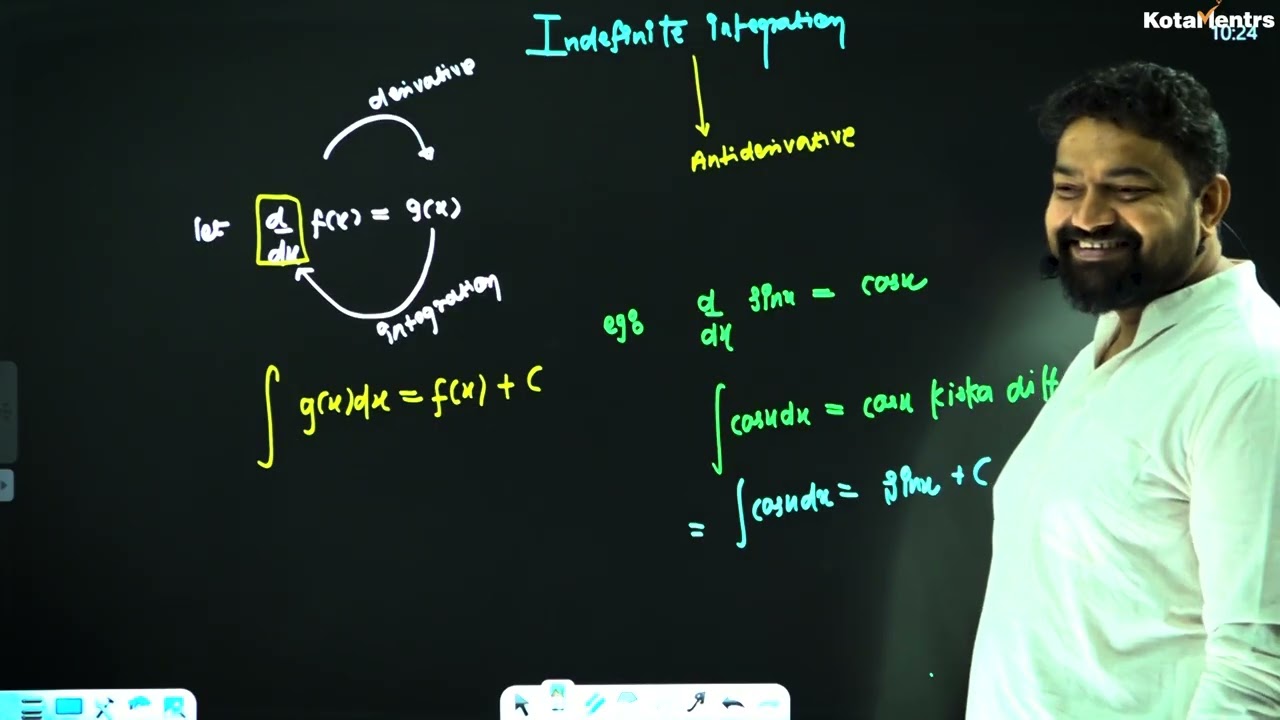 KotaMentrs
10:24
Indefinite integration
derivative
Antiderivative
let d/dx f(x) = g(x)
integration
eg: d/dx sinx = cosx
∫ g(x)dx = f(x) + C
∫cosxdx = cosx kiska diff
= ∫cosxdx = sinx + C